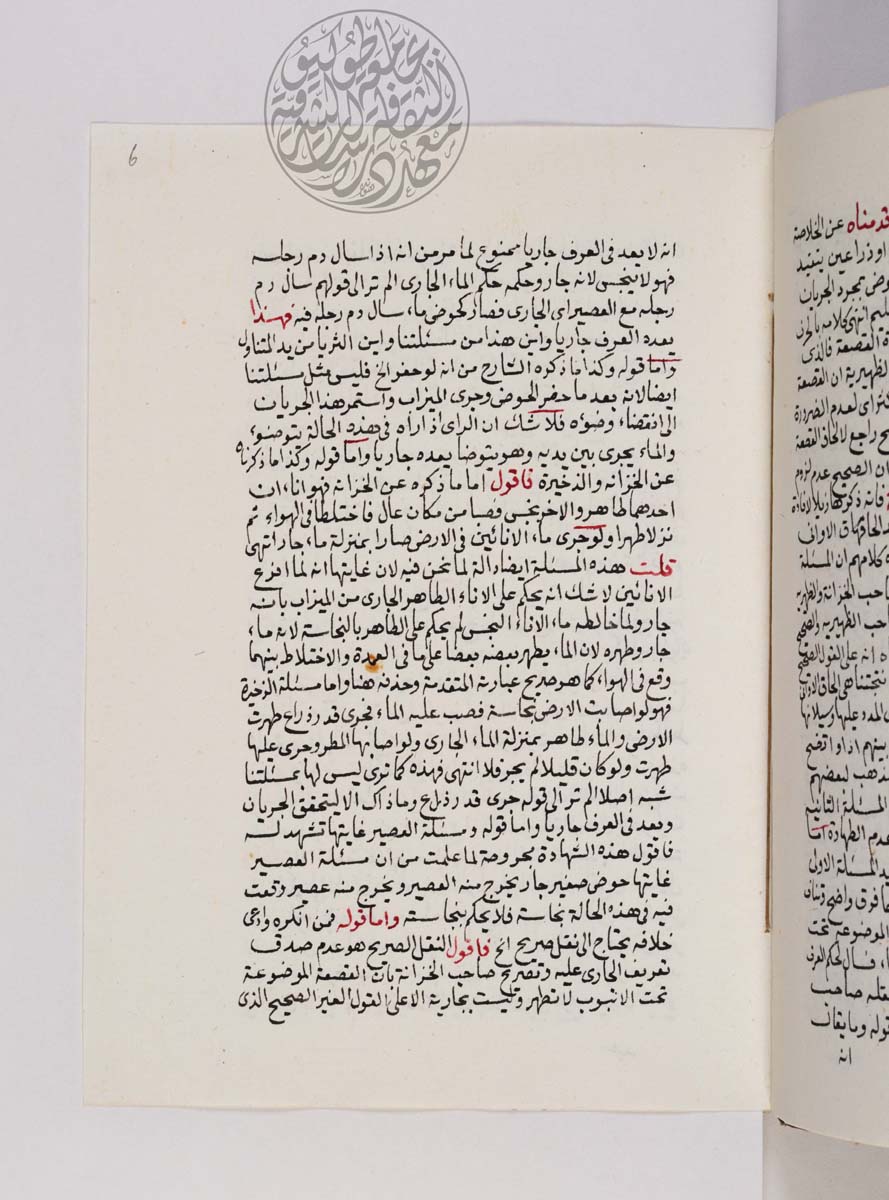 6
انه لا يعد فى العرف جاريا ممنوع لما مر من انه اذا سال دم رجله
فهو لا ينجس لانه جار وحكمه حكم الماء الجارى الم تر الى قولهم سال دم
رجله مع العصير اى الجارى فصار كحوض ماء سال دم رجله فيه فهذا
يعده العرف جاريا واين هذا من مسئلتنا واين الثريا من يد المتناول
واما قوله وكذا ما ذكره الشارح من انه لو حفر الخ فليس مثل مسئلتنا
ايضا لانه بعد ما حفر الحوض وجرى الميزاب واستمر هذا الجريان
الى انقضاء وضوئه فلا شك ان الراى اذا راه فى هذه الحالة يتوضؤ
والماء يجرى بين يديه وهو يتوضا يعده جاريا واما قوله وكذا ما ذكرناه
عن الخزانه والذخيرة فاقول اما ما ذكره عن الخزانه فهو اناءان
احدهما طاهر والاخر نجس فصبا من مكان عال فاختلطا فى الهواء ثم
نزلا طهرا ولو جرى ماء الانائين فى الارض صارا بمنزلة ماء جار انتهى
قلت هذه المسئلة ايضا دالة لما نحن فيه لان غايتها انه لما افرغ
الانائين لا شك انه يحكم على الاناء الطاهر الجارى من الميزاب بانه
جار ولما خالطه ماء الاناء النجس لم يحكم على الطاهر بالنجاسة لانه ماء
جار وطهره لان الماء يطهر بعضه بعضا على ما فى العمدة والاختلاط بينهما
وقع فى الهواء كما هو صريح عبارته المتقدمة وحذفه هنا واما مسئلة الذخيرة
فهو لو اصابت الارض نجاسة فصب عليه الماء فجرى قدر ذراع طهرت
الارض والماء طاهر بمنزلة الماء الجارى ولو اصابها المطر وجرى عليها
طهرت ولو كان قليلا لم يجر فلا انتهى فهذه كما ترى ليس لها بمسئلتنا
شبه اصلا الم تر الى قوله جرى قدر ذراع وما ذاك الا ليتحقق الجريان
ويعد فى العرف جاريا واما قوله ومسئلة العصير غايتها تشهد له
فاقول هذه الشهادة مجروحة لما علمت من ان مسئلة العصير
غايتها حوض صغير جار يخرج منه العصير ويخرج منه عصير وقعت
فيه فى هذه الحالة نجاسة فلا يحكم بنجاسته واما قوله فمن انكره وادعى
خلافه يحتاج الى نقل صريح الخ فاقول النقل الصريح هو عدم صدق
تعريف الجارى عليه وتصريح صاحب الخزانة بان القصعة الموضوعة
تحت الانبوب لا تطهر وليست بجارية الا على القول الغير الصحيح الذى
قدمناه عن الخلاصة
او ذراعين يتقيد
وض بمجرد الجريان
القصعة فالذى
الظهيرية ان القصعة
لعدم الضرورة
راجع لالحاق القصعة
ان الصحيح عدم لزوم
كلامهم ان المسئلة
احب الخزانة والظهيرية
انه على القول الصحيح
بينهم اذا واتضح
المسئلة الثانيه
عدم الطهارة اما
المسئلة الاولى
فرق واضح
الموضوعة تحت
نقله صاحب
قوله وما يقال
انه